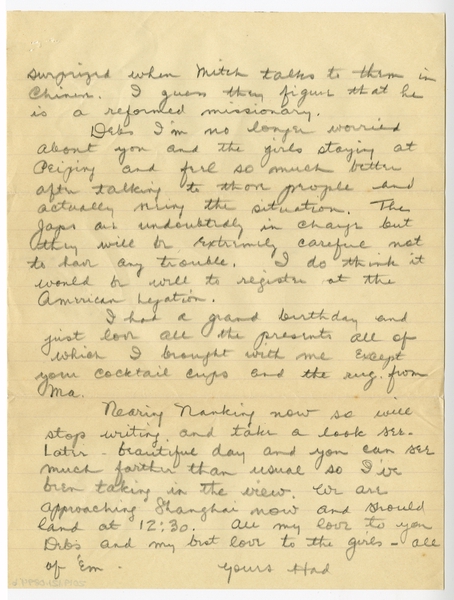 surprized when Mitch talks to them in
Chinese. I guess they figure that he
is a reformed missionary.
Debs I'm no longer worried
about you and the girls staying at
Peiping and feel so much better
after talking to those people and
actually seeing the situation. The
Japs are undoubtedly in charge but
they will be extremely careful not
to have any trouble. I do think it
would be well to register at the
American Legation.
I had a grand birthday and
just love all the presents all of
which I brought with me except
your cocktail cups and the rug from
Ma.
Nearing Nanking now so will
stop writing and take a look see.
Later - beautiful day and you can see
much farther than usual so I've
been taking in the view. We are
approaching Shanghai now and should
land at 12:30. All my love to you
Debs and my best love to the girls - all
of 'em.
Yours Had